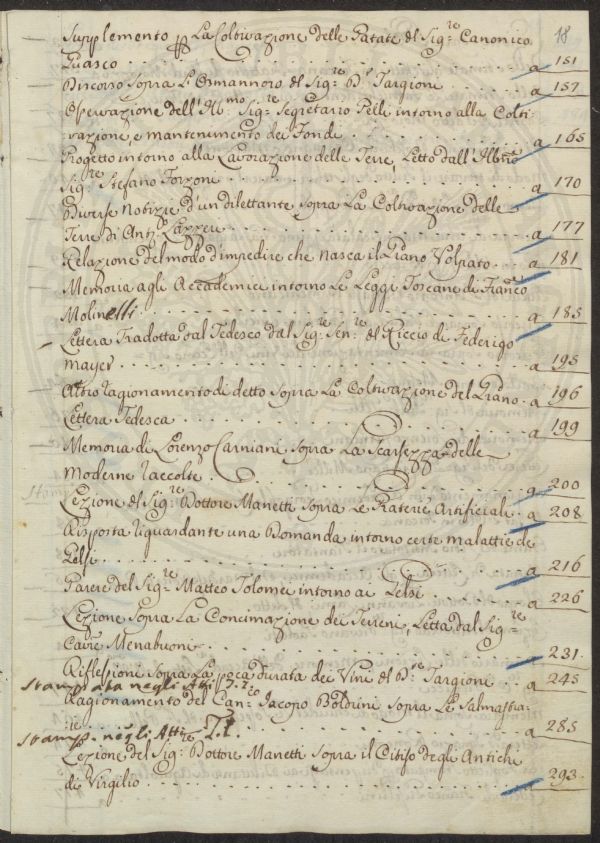 18
Supplemento p. La Coltivazione delle Patate del Sigre. Canonico
Guasco . . . a 151
Discorso sopra L'Ormannoro del Sigre. Dr. Targioni . . . a 157
Operazione dell'Illmo. Sigre. Segretario Pelli intorno alla Colti-
vazione, e mantenimento dei Fondi . . . a 165
Progetto intorno alla Lavorazione delle Terre, Letto dall'Illmo
Sigre Stefano Forzoni . . . a 170
Diverse Notizie d'un dilettante sopra La Coltivazione delle
Terre di Anto. Larreu . . . a 177
Relazione del modo d'impedire che nasca il Grano Volpato . . . a 181
Memoria agli Accademici intorno Le Leggi Toscane di Franco
Molinelli . . . a 185
Lettera Tradotta dal Tedesco dal Sigre. Senre. del Riccio di Federigo
Mayer . . . a 195
Altro ragionamento di detto sopra La Coltivazione del Grano . a 196
Lettera Tedesca . . . a 199
Memoria di Lorenzo Carniani sopra La Scarsezza delle
Moderne raccolte . . . a 200
Stamp
Lezione del Sigre. Dottore Manetti sopra Le Praterie Artificiali . . a 208
Risposta riguardante una Domanda intorno certe malattie de
Gelsi . . . a 216
Parere del Sigre. Matteo Tolomei intorno ai Gelsi . . . a 226
Lezione sopra La Concimazione dei Terreni, Letta dal Sigre
Cavre Menabuoni . . . a 231
Riflessioni sopra La poca durata dei Vini del Dre Targioni . . a 245
Stampata negli Atti T. 1.
Ragionamento del Canco. Iacopo Boldrini sopra Le Salmastra-
ie . . . a 285
Stamp. negli Atti T. 1.
Lezione del Sigre. Dottore Manetti sopra il Citiso degli Antichi
di Virgilio . . . a 293